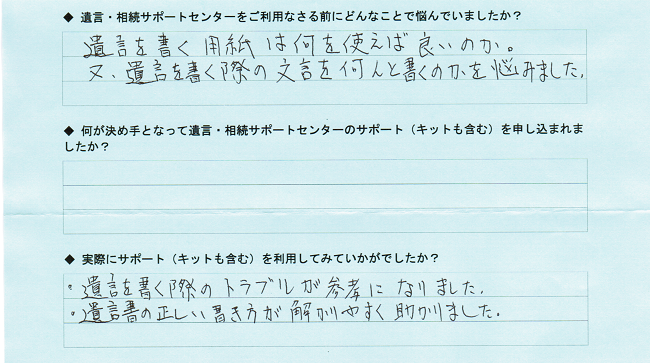 ◆ 遺言・相続サポートセンターをご利用なさる前にどんなことで悩んでいましたか？
遺言を書く用紙は何を使えば良いのか。
又、遺言を書く際の文言を何んと書くのかを悩みました.
◆ 何が決め手となって遺言・相続サポートセンターのサポート（キットも含む）を申し込まれま
したか？
◆ 実際にサポート（キットも含む）を利用してみていかがでしたか？
・遺言を書く際のトラブルが参考になりました.
・遺言書の正しい書き方が解かりやすく助かりました.